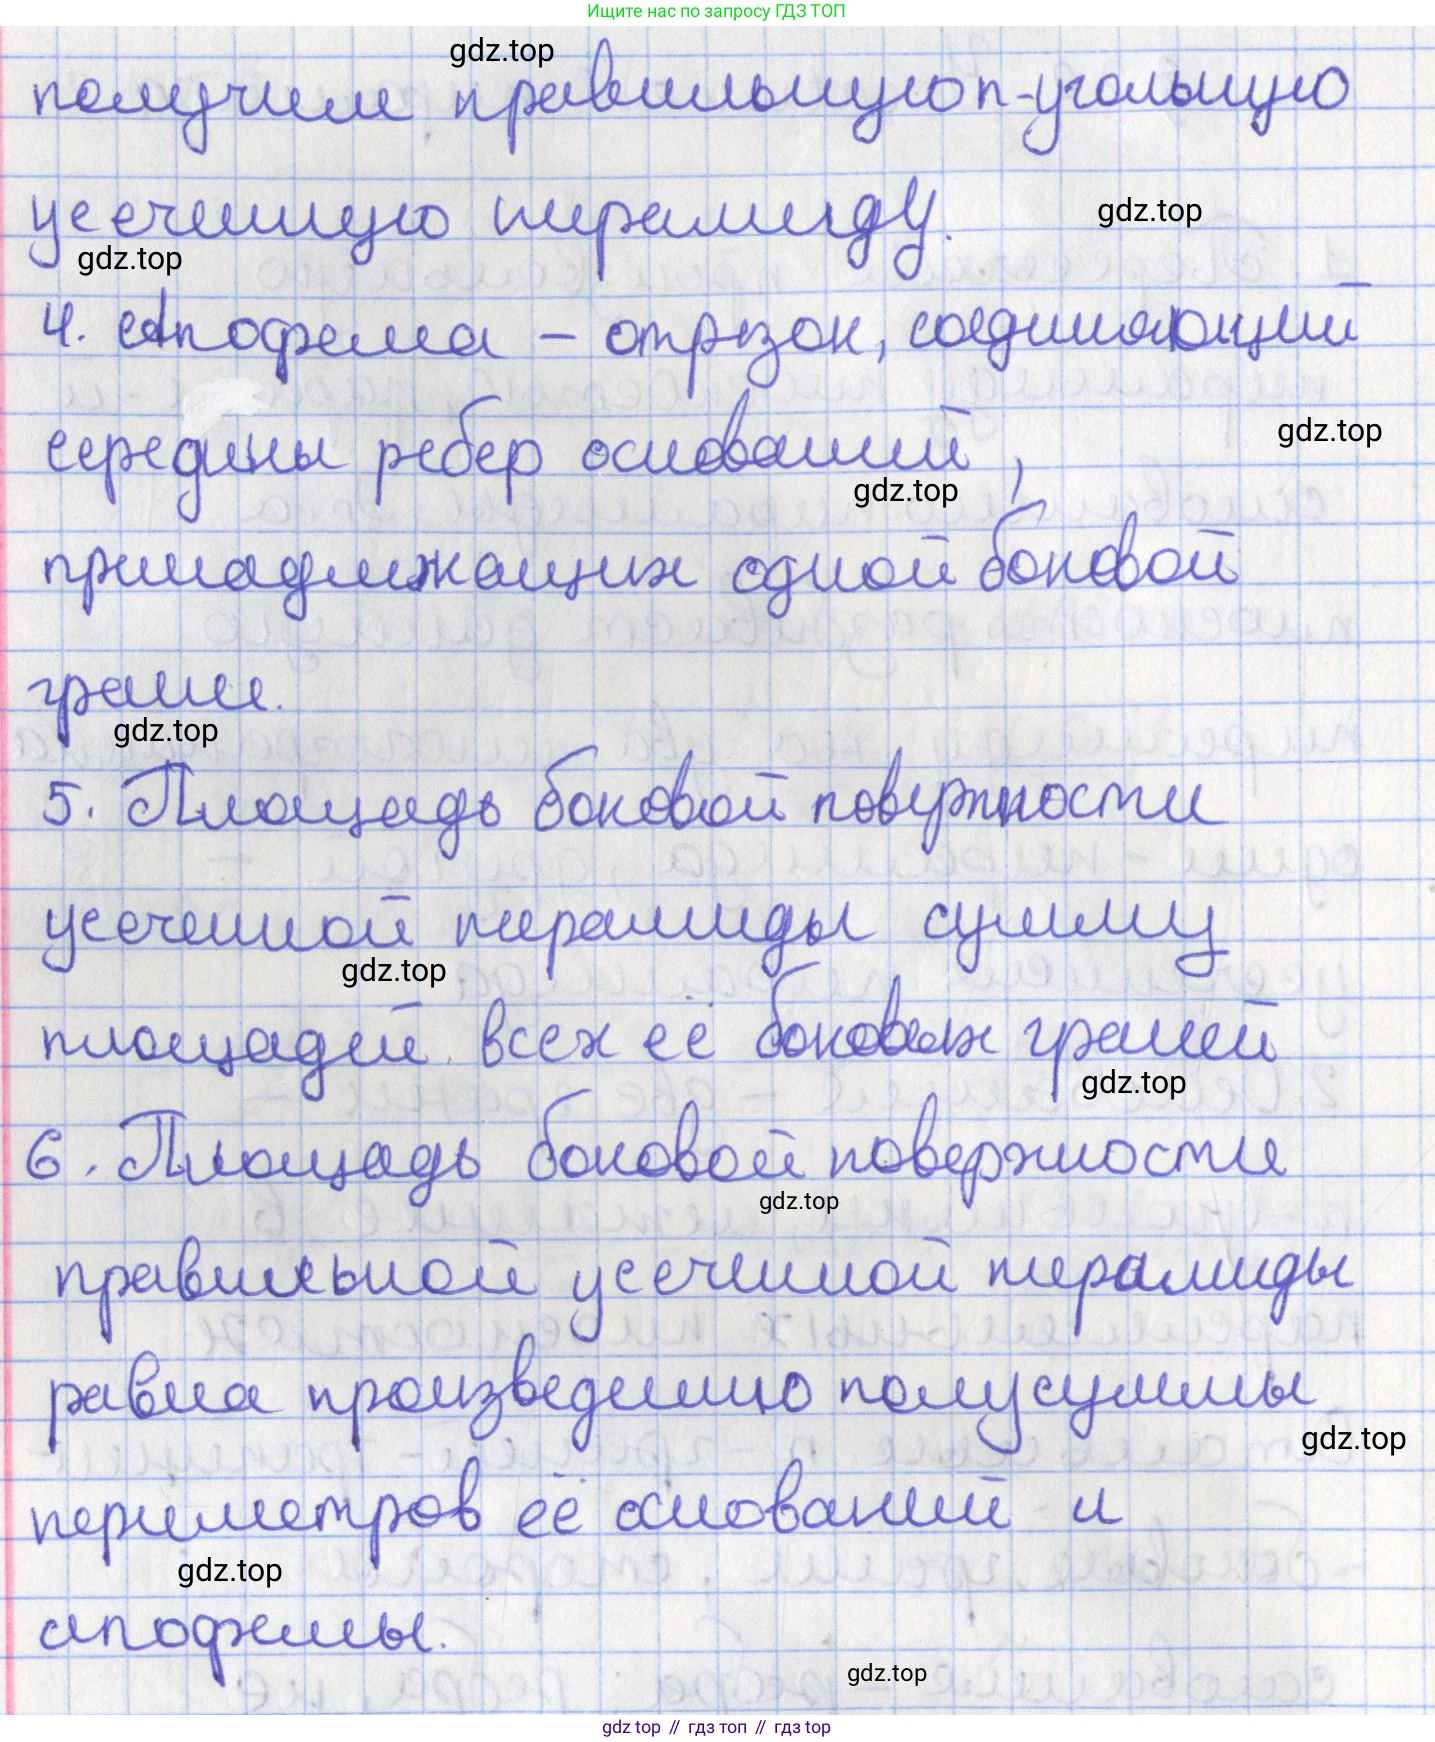 Ищите нас по запросу ГДЗ ТОП
gdz.top
получим правильную n-угольную
усеченную пирамиду.
gdz.top
gdz.top
4. Апофема – отрезок, соединяющий
середины ребер оснований,
gdz.top
gdz.top
принадлежащих одной боковой
грани.
gdz.top
5. Площадь боковой поверхности
усеченной пирамиды сумму
gdz.top
площадей всех её боковых граней
gdz.top
6. Площадь боковой поверхности
gdz.top
правильной усеченной пирамиды
равна произведению полусуммы
gdz.top
периметров её оснований и
gdz.top
апофемы.
gdz.top
gdz top // гдз топ // gdz top